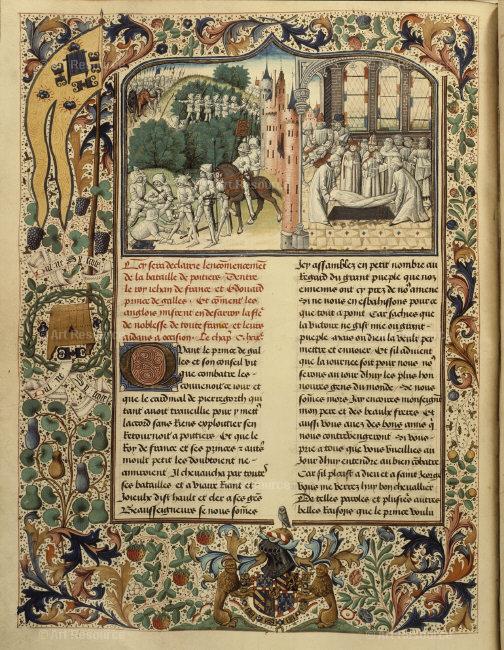 Cy sera declaire lencommencement
de la bataille de poitiers Dentre
le roy iehan de france et Edouard
prince de galles Et comment les
anglois misrent en desarroy la fle
de noblesse de toute france et leurs
aidans a occision Le chap
Quant le prince de gal
les et son conseil vit
que combatre les
conuenoit ce iour et
que le cardinal de pierregorth qui
tant auoit traueillie pour y mett
laccord sans riens exploitier sen
retournoit a poitiers Et que le
Roy de france et ses princes
moult petit les doubtoient ne
amoient Il cheuaucha par toute
ses batailles et a viaire riant et
Joieulx dist hault et cler a ses gens
Beausseigneurs se nous sommes
Icy assamblez en petit nombre au
regard du grant pueple que noz
ennemis ont cy prez de nous amene
Si ne nous en esbahissons pour ce
que tout a point Car saches que
la victoire ne gist mie ou grant
pueple mais ou dieu la veult per
mettre et enuoier Et sil aduient
que la iournee soit pour nous nous
serons au iour dhuy les plus hon
nourez gens du monde Se nous
sommes mors Iay encores monseigneur
mon pere et des beaulx freres Et
aussi vous auez des bons amis qui
nous contrebengeront Si vous
prie a tous que vous vueilliez au
Jour dhuy entendre au bien combatre
Car sil plaist a dieu et a saint George
vous me verrez huy bon cheuallier
De telles paroles et plusieurs autres
belles raisons que le prince voulu
Art Resource